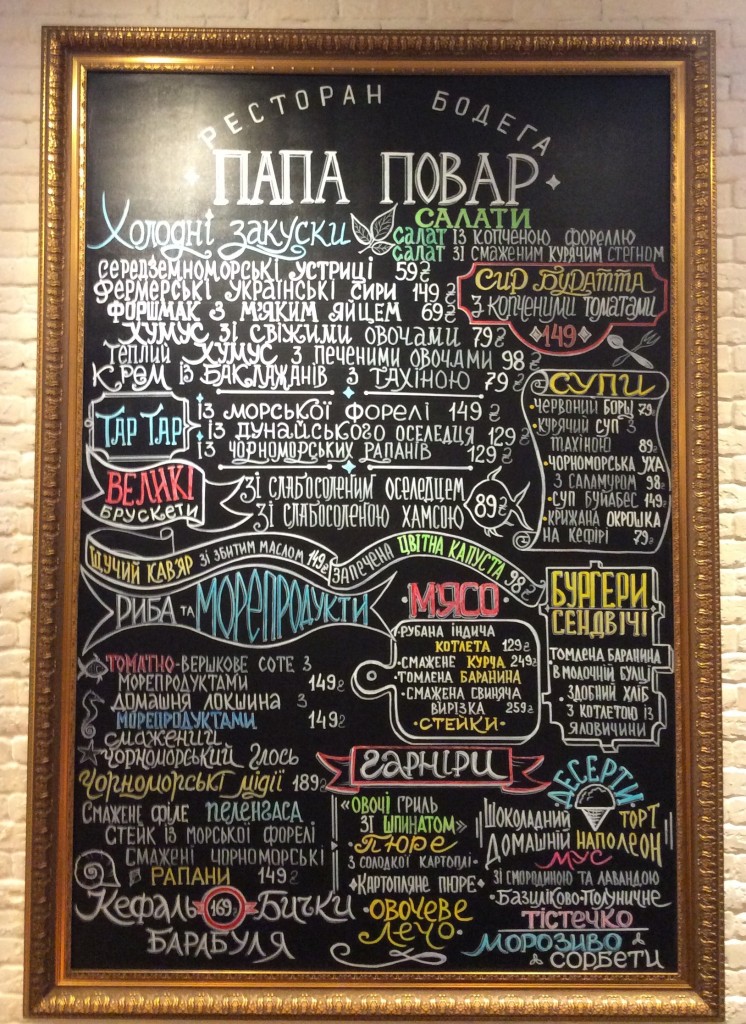 РЕСТОРАН БОДЕГА
ПАПА ПОВАР
Холодні закуски
СЕРЕДЗЕМНОМОРСЬКІ УСТРИЦІ 59₴
ФЕРМЕРСЬКІ УКРАЇНСЬКІ СИРИ 149₴
ФОРШМАК З М'ЯКИМ ЯЙЦЕМ 69₴
ХУМУС ЗІ СВІЖИМИ ОВОЧАМИ 79₴
ТЕПЛИЙ ХУМУС З ПЕЧЕНИМИ ОВОЧАМИ 98₴
КРЕМ ІЗ БАКЛАЖАНІВ З ТАХІНОЮ 79₴
САЛАТИ
САЛАТ ІЗ КОПЧЕНОЮ ФОРЕЛЛЮ
САЛАТ ЗІ СМАЖЕНИМ КУРЯЧИМ СТЕГНОМ
СИР БУРАТТА
З КОПЧЕНИМИ ТОМАТАМИ
149
ТАР ТАР
ІЗ МОРСЬКОЇ ФОРЕЛІ 149₴
ІЗ ДУНАЙСЬКОГО ОСЕЛЕДЦЯ 129₴
ІЗ ЧОРНОМОРСЬКИХ РАПАНІВ 129₴
ВЕЛИКІ
БРУСКЕТИ
ЗІ СЛАБОСОЛЕНИМ ОСЕЛЕДЦЕМ
ЗІ СЛАБОСОЛЕНОЮ ХАМСОЮ
89₴
СУПИ
•ЧЕРВОНИЙ БОРЩ 79₴
•КУРЯЧИЙ СУП З
ТАХІНОЮ 89₴
•ЧОРНОМОРСЬКА УХА
З САЛАМУРОМ 98₴
•СУП БУЙАБЕС 149₴
•КРИЖАНА ОКРОШКА
НА КЕФІРІ 79₴
ЩУЧИЙ КАВ'ЯР ЗІ ЗБИТИМ МАСЛОМ 149₴
ЗАПЕЧЕНА ЦВІТНА КАПУСТА 98₴
РИБА ТА МОРЕПРОДУКТИ
ТОМАТНО-ВЕРШКОВЕ СОТЕ З
МОРЕПРОДУКТАМИ 149₴
ДОМАШНЯ ЛОКШИНА З
МОРЕПРОДУКТАМИ 149₴
СМАЖЕНИЙ
ЧОРНОМОРСЬКИЙ ГЛОСЬ
ЧОРНОМОРСЬКІ МІДІЇ 189₴
СМАЖЕНЕ ФІЛЕ ПЕЛЕНГАСА
СТЕЙК ІЗ МОРСЬКОЇ ФОРЕЛІ
СМАЖЕНІ ЧОРНОМОРСЬКІ
РАПАНИ 149₴
Кефаль 169₴ Бички
БАРАБУЛЯ
М'ЯСО
•РУБАНА ІНДИЧА
КОТЛЕТА 129₴
•СМАЖЕНЕ КУРЧА 249₴
•ТОМЛЕНА БАРАНИНА
•СМАЖЕНА СВИНЯЧА
ВИРІЗКА 259₴
•СТЕЙКИ•
БУРГЕРИ
СЕНДВІЧІ
ТОМЛЕНА БАРАНИНА
В МОЛОЧНІЙ БУЛЦІ
ЗДОБНИЙ ХЛІБ
З КОТЛЕТОЮ ІЗ
ЯЛОВИЧИНИ
ГАРНІРИ
«ОВОЧІ ГРИЛЬ
ЗІ ШПИНАТОМ»
ПЮРЕ
З СОЛОДКОЇ КАРТОПЛІ
•КАРТОПЛЯНЕ ПЮРЕ•
•ОВОЧЕВЕ
ЛЕЧО•
ДЕСЕРТИ
ШОКОЛАДНИЙ ТОРТ
ДОМАШНІЙ НАПОЛЕОН
МУС
ЗІ СМОРОДИНОЮ ТА ЛАВАНДОЮ
БАЗИЛІКОВО-ПОЛУНИЧНЕ
ТІСТЕЧКО
МОРОЗИВО
СОРБЕТИ